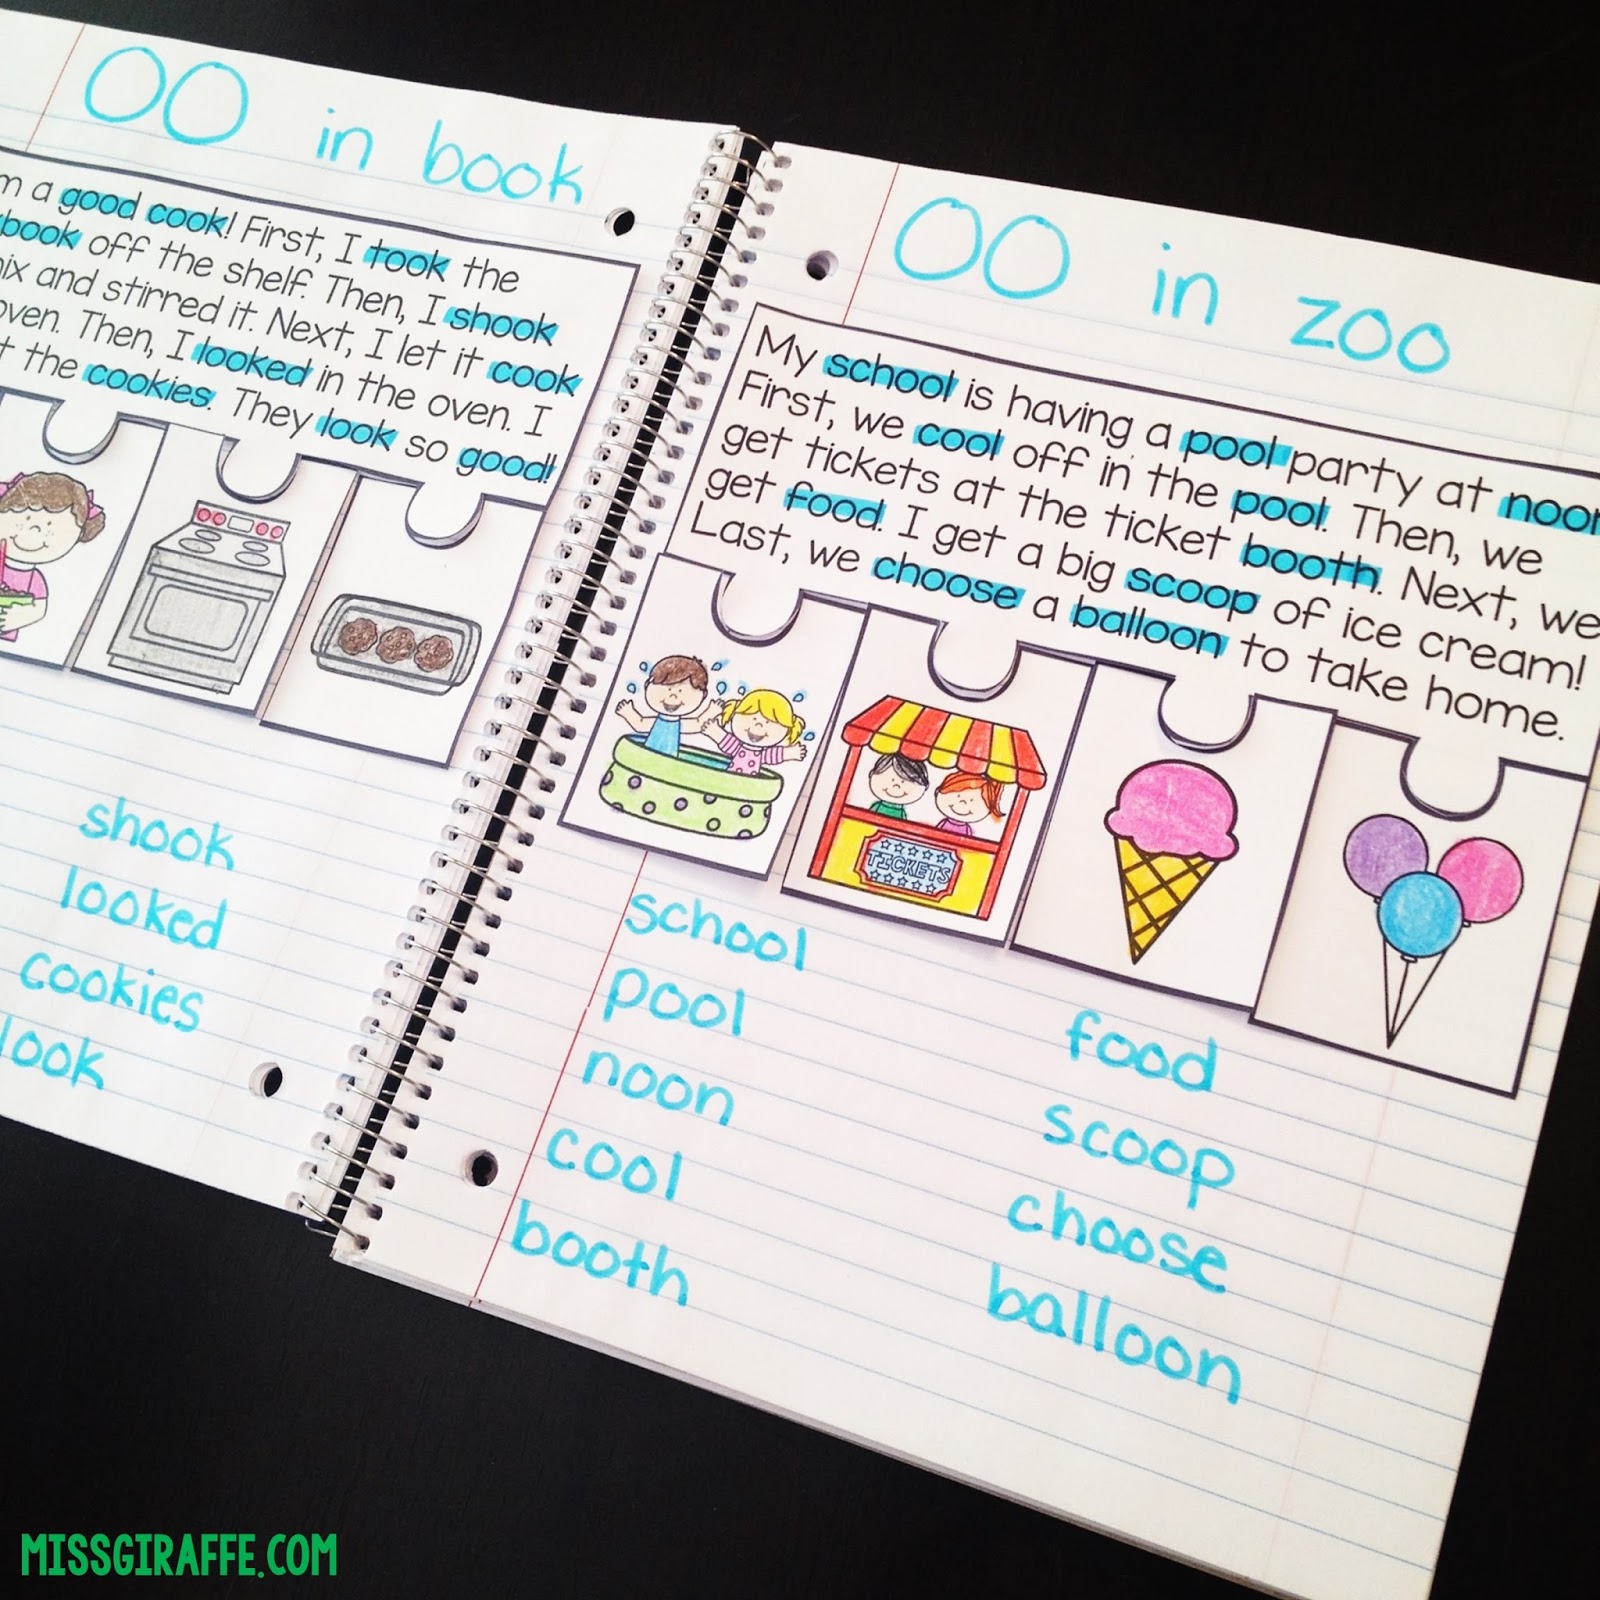 OO in book
m a good cook! First, I took the
book off the shelf. Then, I shook
mix and stirred it. Next, I let it cook
oven. Then, I looked in the oven. I
the cookies. They look so good!
shook
looked
cookies
look
OO in zoo
My school is having a pool party at noon
First, we cool off in the pool. Then, we
get tickets at the ticket booth. Next, we
get food. I get a big scoop of ice cream!
Last, we choose a balloon to take home.
TICKETS
school
pool
noon
cool
booth
food
scoop
choose
balloon
MISSGIRAFFE.COM